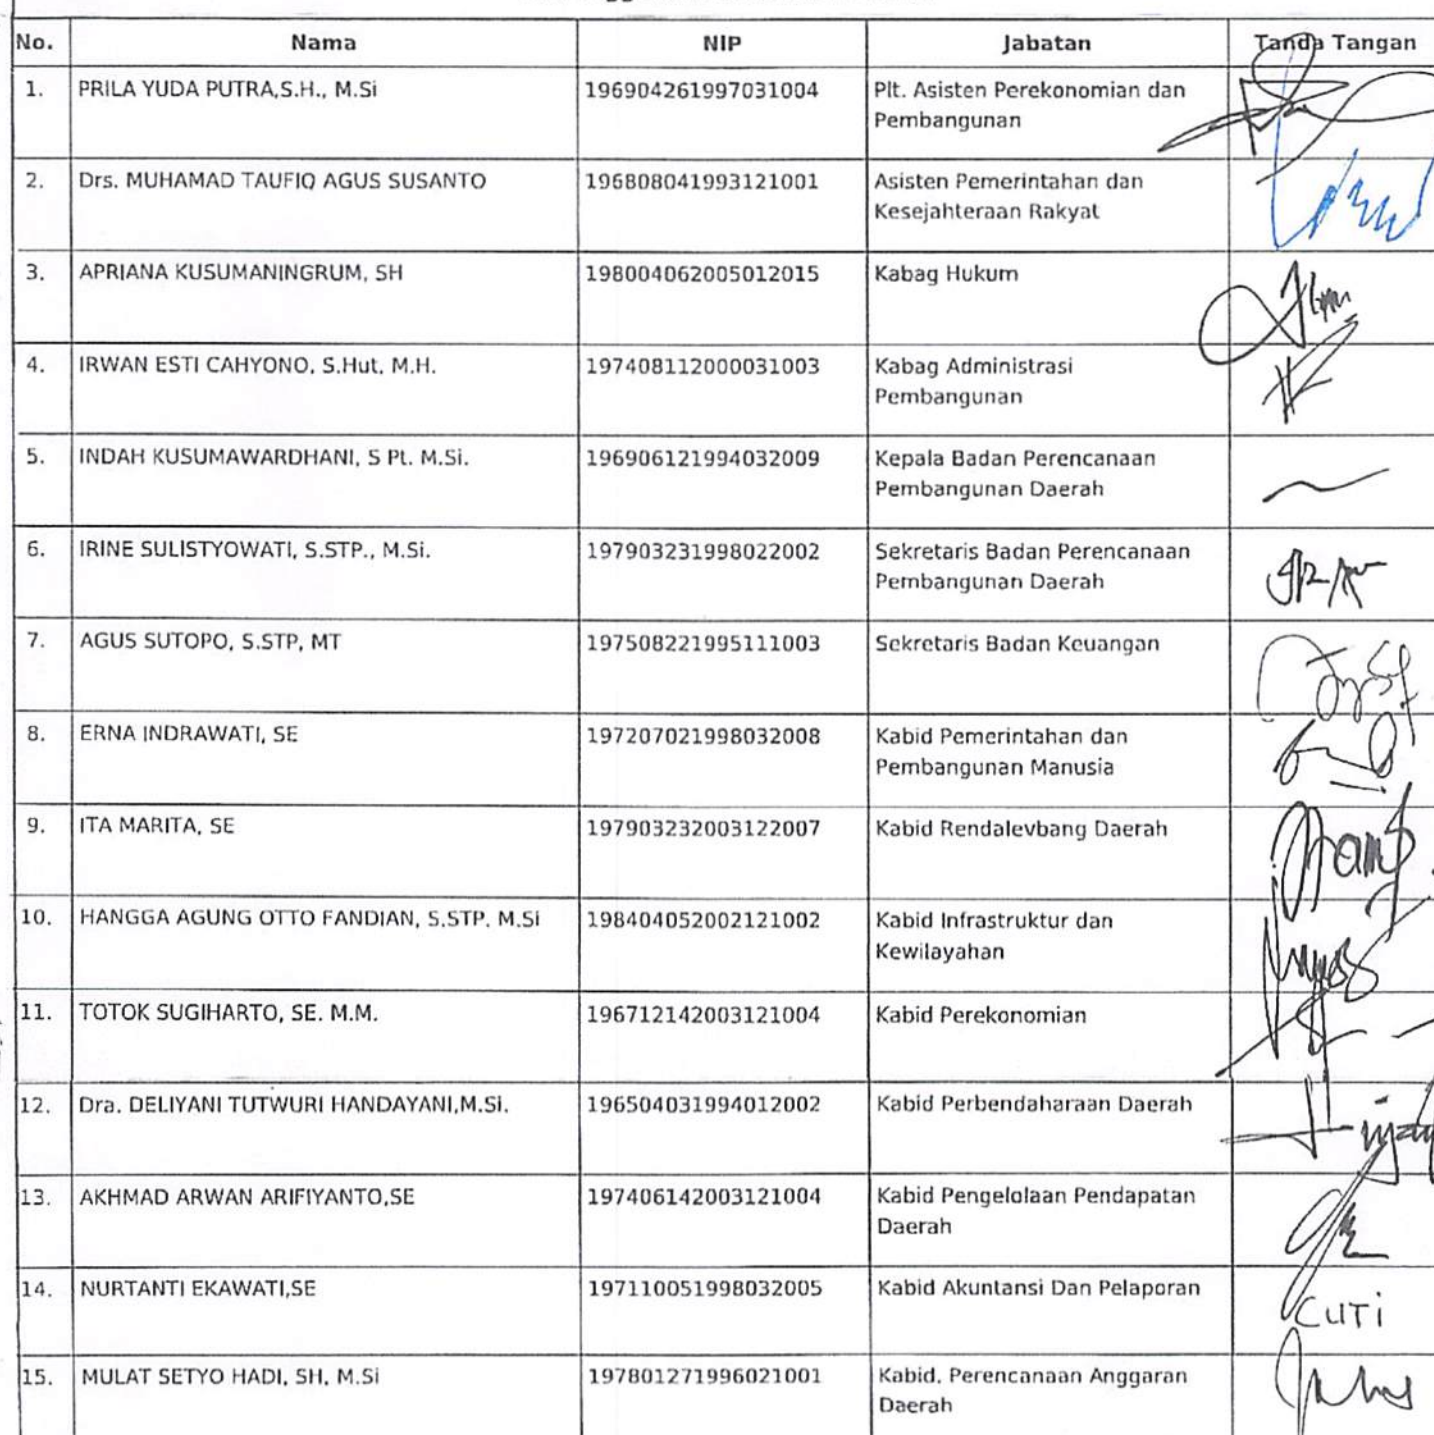 No. Nama NIP Jabatan Tanda Tangan
1. PRILA YUDA PUTRA,S.H., M.Si 196904261997031004 Plt. Asisten Perekonomian dan
Pembangunan
2. Drs. MUHAMAD TAUFIQ AGUS SUSANTO 196808041993121001 Asisten Pemerintahan dan
Kesejahteraan Rakyat
3. APRIANA KUSUMANINGRUM, SH 198004062005012015 Kabag Hukum
4. IRWAN ESTI CAHYONO, S.Hut, M.H. 197408112000031003 Kabag Administrasi
Pembangunan
5. INDAH KUSUMAWARDHANI, S Pt. M.Si. 196906121994032009 Kepala Badan Perencanaan
Pembangunan Daerah
6. IRINE SULISTYOWATI, S.STP., M.Si. 197903231998022002 Sekretaris Badan Perencanaan
Pembangunan Daerah
7. AGUS SUTOPO, S.STP, MT 197508221995111003 Sekretaris Badan Keuangan
8. ERNA INDRAWATI, SE 197207021998032008 Kabid Pemerintahan dan
Pembangunan Manusia
9. ITA MARITA, SE 197903232003122007 Kabid Rendalevbang Daerah
10. HANGGA AGUNG OTTO FANDIAN, S.STP. M.Si 198404052002121002 Kabid Infrastruktur dan
Kewilayahan
11. TOTOK SUGIHARTO, SE. M.M. 196712142003121004 Kabid Perekonomian
12. Dra. DELIYANI TUTWURI HANDAYANI,M.Si. 196504031994012002 Kabid Perbendaharaan Daerah
13. AKHMAD ARWAN ARIFIYANTO,SE 197406142003121004 Kabid Pengelolaan Pendapatan
Daerah
14. NURTANTI EKAWATI,SE 197110051998032005 Kabid Akuntansi Dan Pelaporan CUTi
15. MULAT SETYO HADI, SH, M.Si 197801271996021001 Kabid. Perencanaan Anggaran
Daerah